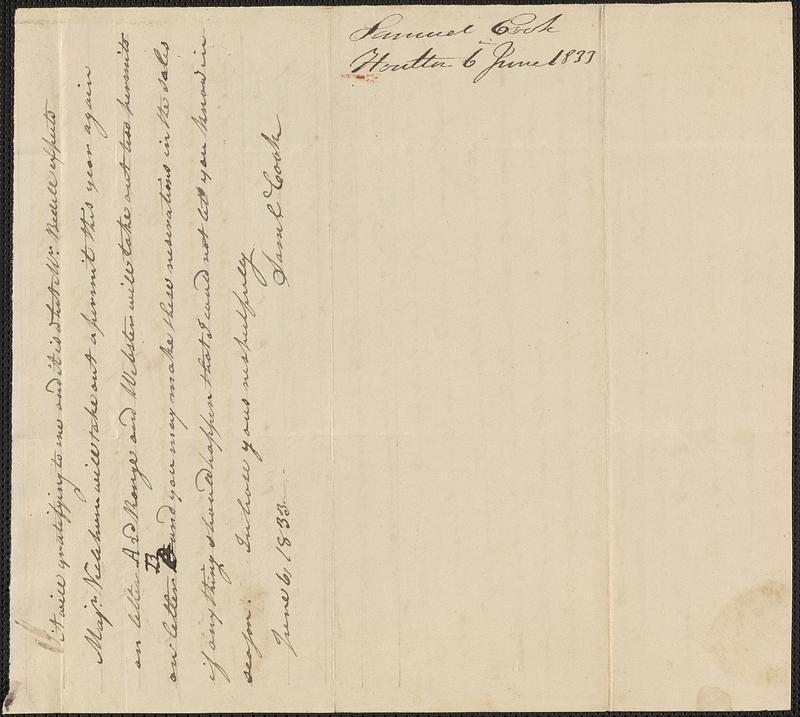 it will gratifying to me and it is what Mr. Bedell expects
Majr. Ketchum will take out a permit this year again
on letter A 2d Range and Webster will take out two permits
on letter B and you may make these reservations in the sales
if any thing should happen that I could not let you know in
season. In hast yours respectfully
June 6, 1833 Saml Cook
Samuel Cook
Houlton 6 June 1833